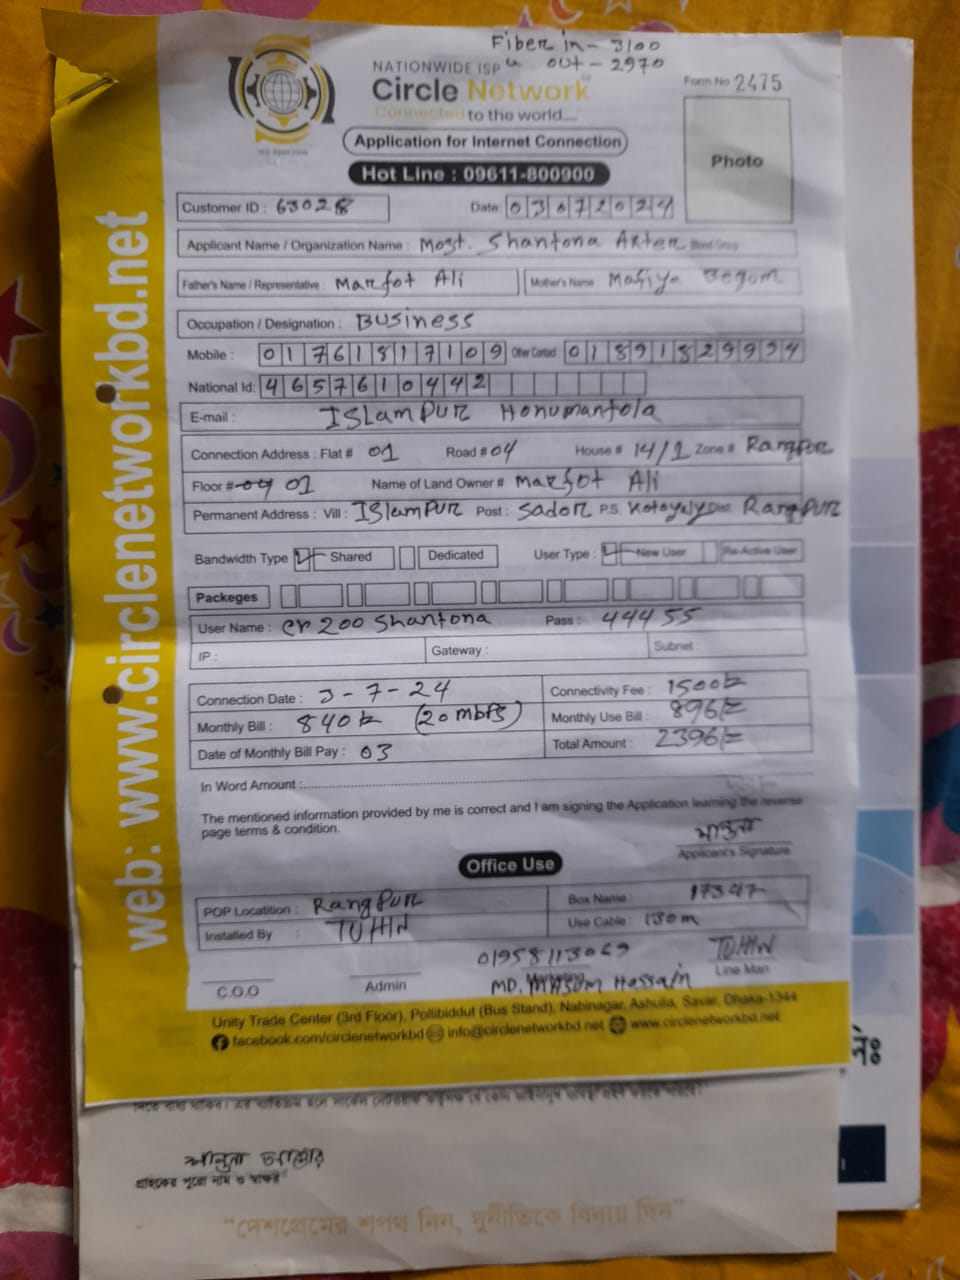 Fiber in - 3100
NATIONWIDE ISP " out - 2970
Circle Network
Form No 2475
Connected to the world....
Application for Internet Connection
Photo
Hot Line : 09611-800900
Customer ID : 63028 Date 03072024
Applicant Name / Organization Name : Most. Shantona Akter Blood Group
Father's Name / Representative : Marfot Ali Mother's Name : Begum
Occupation / Designation : BUSiness
Mobile : 01761817109 Other Contact 01891829994
National Id: 4657610442
E-mail : ISlamPUR Honumantola
Connection Address : Flat # 01 Road # 04 House # 14/1 Zone # Rangpur
Floor # 04 01 Name of Land Owner # Marfot Ali
Permanent Address : Vill : ISlamPUR Post : Sador P.S. Kotoyaly Dist: RangPUR
Bandwidth Type Shared Dedicated User Type : New User Re-Active User
Packeges
User Name : cr200 Shantona Pass : 44455
IP : Gateway : Subnet :
Connection Date : 3-7-24 Connectivity Fee : 1500/=
Monthly Bill : 840/= (20 mbps) Monthly Use Bill : 896/=
Date of Monthly Bill Pay : 03 Total Amount : 2396/=
In Word Amount :
The mentioned information provided by me is correct and I am signing the Application learning the reverse
page terms & condition.
Applicant's Signature
Office Use
POP Locatition : RangPUR Box Name : 17347
Installed By : TUHIN Use Cable : 130m
01958113069 TUHIN
C.O.O Admin Marketing Line Man
MD. MASUM Hossain
Unity Trade Center (3rd Floor), Pollibiddut (Bus Stand), Nabinagar, Ashulia, Savar, Dhaka-1344
facebook.com/circlenetworkbd info@circlenetworkbd.net www.circlenetworkbd.net
web: www.circlenetworkbd.net
নেঃ
গ্রাহকের পুরো নাম ও স্বাক্ষর
"দেশপ্রেমের শপথ নিন, দুর্নীতিকে বিদায় দিন"